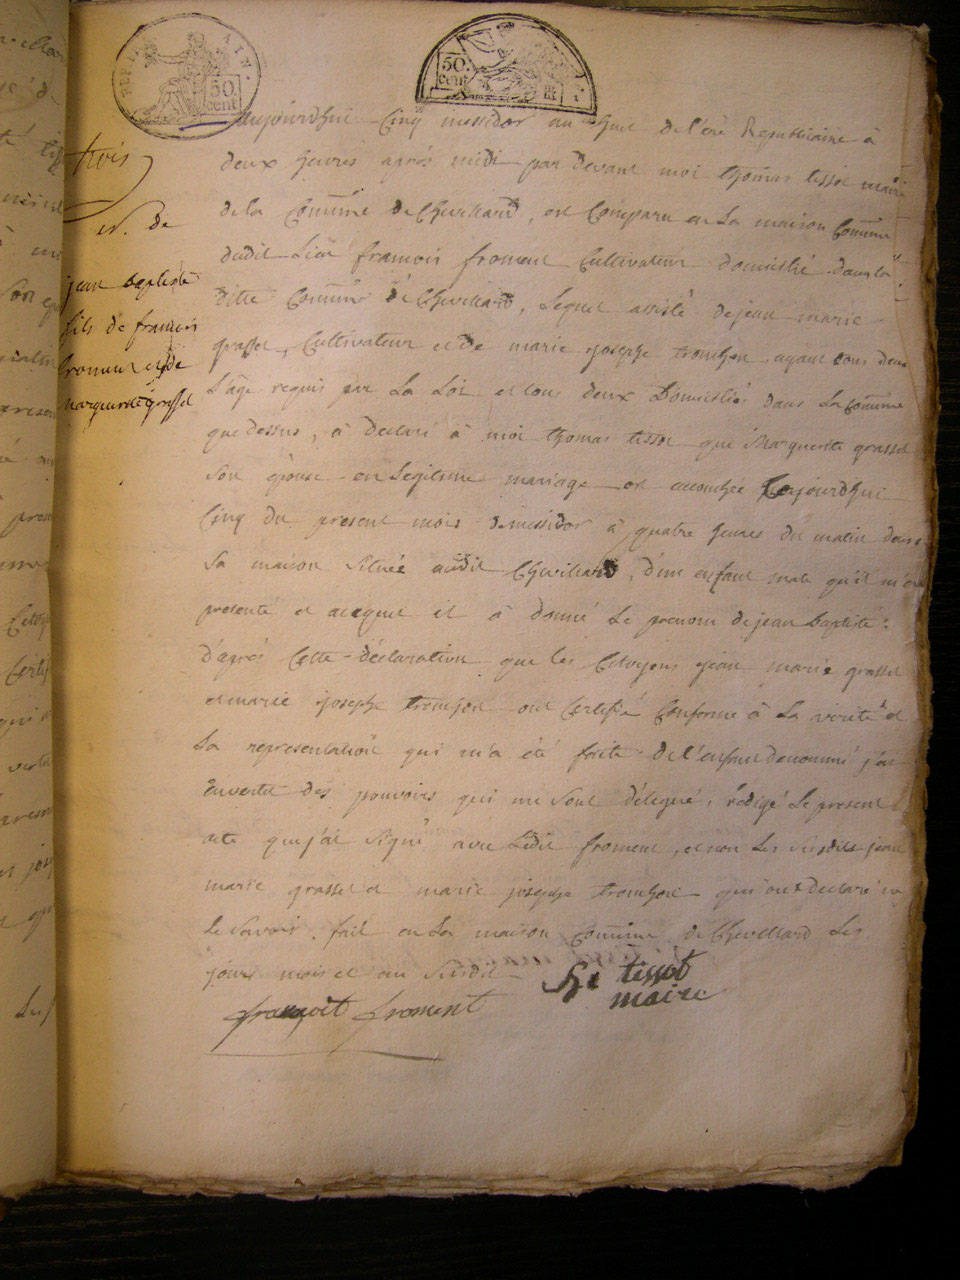 REP. AIN.
50 cent
50. cent
aujourdhui Cinq messidor an huit de l'ère Républicaine à
deux heures après midi par devant moi thomas tissot maire
de la Commune de Chevillard, est Comparu en La maison Commune
dudit Lieu francois froment Cultivateur domicilié dans la
ditte Commune de Chevillard, Lequel assisté de jean marie
grassel, Cultivateur et de marie josephe tronchon ayant tous deux
L'âge requis par La Loi et tous deux Domiciliés dans La Commune
que dessus, à déclaré à moi thomas tissot que Marguerite grassel
Son épouse en Legitime mariage est accouchée Cejourdhui
Cinq du present mois de messidor à quatre heures du matin dans
Sa maison Située audit Chevillard, d'un enfant male qu'il m'a
presenté et auquel il à donné Le prenom de jean baptiste.
d'après Cette déclaration que les Citoyens jean marie grassel
et marie josephe tronchon ont Certifié Conforme à La vérité et
La representation qui m'a été faite de l'enfant denommé j'ai
en vertu des pouvoirs qui me Sont délegué, rédigé Le present
acte que j'ai Signé avec Ledit froment, et non Les Susdits jean
marie grassel et marie josephe tronchon qui ont déclaré ne
Le Savoir. fait en La maison Commune de Chevillard Les
jour mois et an Susdit
francoit froment
tissot
maire
trois
N. de
jean baptiste
fils de francois
froment et de
marguerite grassel